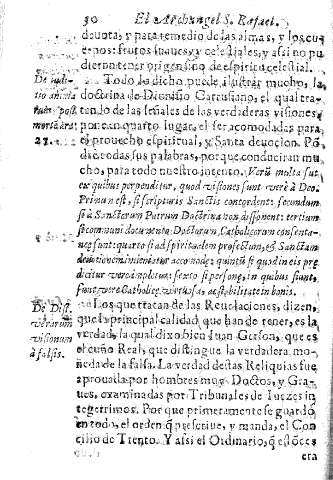 30 El Archangel S. Rafael.
deuota, y para remedio de las almas, y los cuer
pos: frutos suaues, y celestiales, y assi no pu
dieron tener origen sino de espiritu celestial.
Todo lo dicho puede ilustrar mucho, la
doctrina de Dionisio Cartusiano, el qual tra-
tando de las señales de las verdaderas visiones,
pone en quarto lugar, el ser acomodadas para
el prouecho espiritual, y Santa deuocion. Po
drè todas sus palabras, porque conduciran mu
cho, para todo nuestro intento. Verũ multa sut
ex quibus perpenditur, quod visiones sunt verè à Deo.
Primum est, si scripturis Sanctis concordent: secundum
si à Sanctorum Patrum Doctrina non dissonent: tertium
si communi documento Doctorum Catholicorum consenta-
nea sunt: quarto si ad spiritualem profectum, & Sanctam
deuotionem
dicitur
sunt, verè Catholicæ, virtuosæ, ac stabilitæ in bonis.
Los que tratan de las Reuelaciones, dizen,
que la principal calidad, que han de tener, es la
verdad, la qual dixo bien Iuan Gerson, que es
el cuño Real, que distingue la verdadera mo-
neda de la falsa. La verdad destas Reliquias fue
aprouada por hombres muy Doctos, y Gra-
ues, examinadas por Tribunales de Iuezes in
tegerrimos. Por que primeramente se guardò
en todo, el orden q̃ prescriue, y manda, el Con
cilio de Trento. Y assi el Ordinario, q̃ estõces
era
De
tio
rum post
mortẽ art.
27.
De Dist.
verarum
visionum
à falsis.